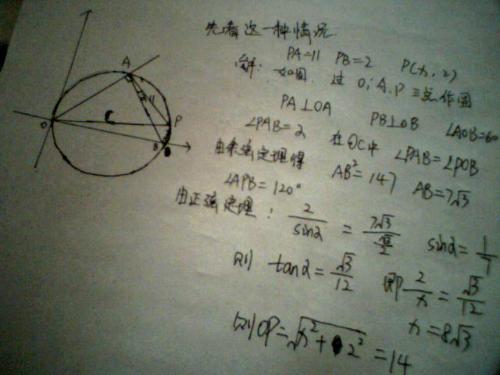 先看这一种情况
PA=11 PB=2 P(x, 2)
解: 如图 过O,A,P三点作圆
PA⊥OA PB⊥OB ∠AOB=60
∠PAB=2 在⊙C中 ∠PAB=∠POB
由余弦定理得 AB²=147 AB=7√3
∠APB=120°
由正弦定理: 2/sin2 = 7√3/(√3/2) sin2=1/7
则 tan2=√3/12 即 2/x=√3/12
x=8√3
则OP=√(x²+2²)=14
A
11
C
O
P
B